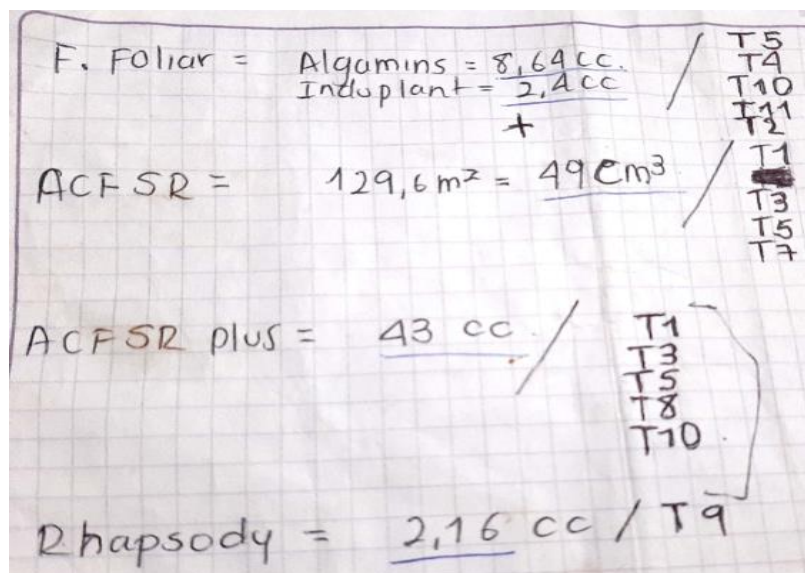 F. Foliar = Algamins = 8,64 cc. / T5
Induplant = 2,4 cc T4
+ T10
T11
T2
ACFSR = 129,6 m² = 49 cm³ / T1
T3
T5
T7
ACFSR plus = 43 cc. / T1
T3
T5
T8
T10
Rhapsody = 2,16 cc / T9